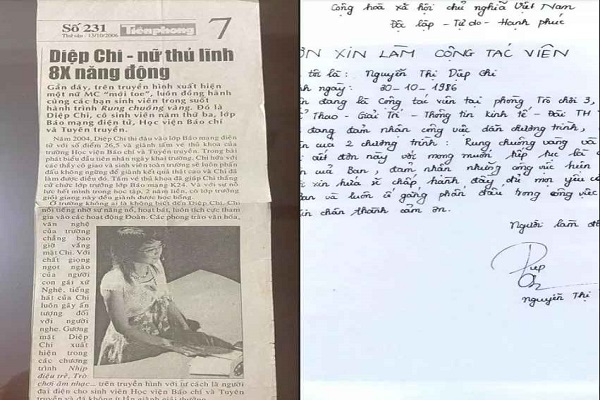 Số 231
Thứ sáu - 13/10/2006
Tiềnphong
7
Diệp Chi - nữ thủ lĩnh
8X năng động
Gần đây, trên truyền hình xuất hiện
một nữ MC "mới toe", luôn đồng hành
cùng các bạn sinh viên trong suốt
hành trình Rung chuông vàng. Đó là
Diệp Chi, cô sinh viên năm thứ ba, lớp
Báo mạng điện tử, Học viện Báo chí
và Tuyên truyền.
Năm 2004, Diệp Chi thi đậu vào lớp Báo mạng điện
tử với số điểm 26,5 và giành tấm vé thủ khoa của
trường Học viện Báo chí và Tuyên truyền. Trong bài
phát biểu đầu tiên nhân ngày khai trường, Chi hứa với
các thầy cô giáo và sinh viên nhà trường sẽ luôn phấn
đấu không ngừng để giành kết quả thật cao và Chi đã
làm được điều đó. Tấm vé thủ khoa đã giúp Chi thắng
cử chức lớp trưởng lớp Báo mạng K24. Và với sự nỗ
lực hết mình trong học tập, 2 năm liền, cô lớp trưởng
giỏi giang này đều giành được học bổng.
Ở trường không ai là không biết đến Diệp Chi. Chi
nổi tiếng nhờ sự năng nổ, hoạt bát, luôn tích cực tham
gia vào các hoạt động Đoàn. Các phong trào văn hóa,
văn nghệ
của trường
chẳng bao
giờ vắng
mặt Chi. Với
chất giọng
ngọt ngào
của người
con gái xứ
Nghệ, tiếng
hát của Chi
luôn gây ấn
tượng đối
với người
nghe. Gương
mặt Diệp
Chi xuất
hiện trong
các chương
trình Nhịp
điệu trẻ, Trò
chơi âm nhạc... trên truyền hình với tư cách là người
đại diện cho sinh viên Học viện Báo chí và Tuyên
truyền và đã không ít lần giành giải thưởng
Cộng hòa xã hội chủ nghĩa Việt Nam
Độc lập - Tự do - Hạnh phúc
ƠN XIN LÀM CỘNG TÁC VIÊN
tôi là : Nguyễn Thị Diệp Chi
nh ngày : 30-10-1986
đang là Cộng tác viên tại phòng Trò chơi 3,
Thao - Giải Trí - Thông tin kinh tế - Đài TH
đang đảm nhận công việc dẫn chương trình,
ên của 2 chương trình : Rung chuông vàng và
viết đơn này với mong muốn tiếp tục là
ên của Ban, đảm nhận những công việc hiện
xin hứa sẽ chấp hành đầy đủ mọi yêu
an và luôn cố gắng phấn đấu trong công việc
in chân thành cảm ơn.
Người làm đơ
Diệp
Chi
Nguyễn Thị